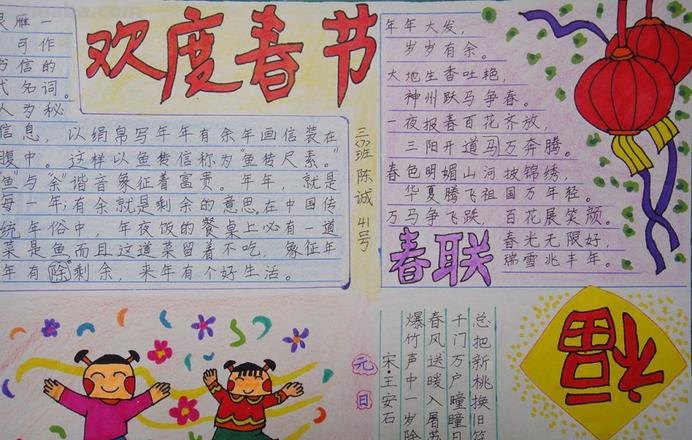 欢度春节
雁一
可作
书信的
代名词。
人为秘
信息，以绢帛写年年有余年画信装在
腹中。这样以鱼传信称为“鱼传尺素。”
“鱼”与“余”谐音象征着富贵。年年，就是
每一年；有余就是剩余的意思，在中国传
统年俗中，年夜饭的餐桌上必有一道
菜是鱼，而且这道菜留着不吃，象征年
年有除剩余，来年有个好生活。
三（2）班 陈诚 41号
年年大发，
岁岁有余。
大地生香吐艳，
神州跃马争春。
一夜报春百花齐放，
三阳开道马万奔腾。
春色明媚山河披锦绣，
华夏腾飞祖国万年轻。
万马争飞跃，百花展笑颜。
春光无限好，
瑞雪兆丰年。
春联
福
元日
宋·王安石
爆竹声中一岁除
春风送暖入屠苏
千门万户瞳瞳日
总把新桃换旧符